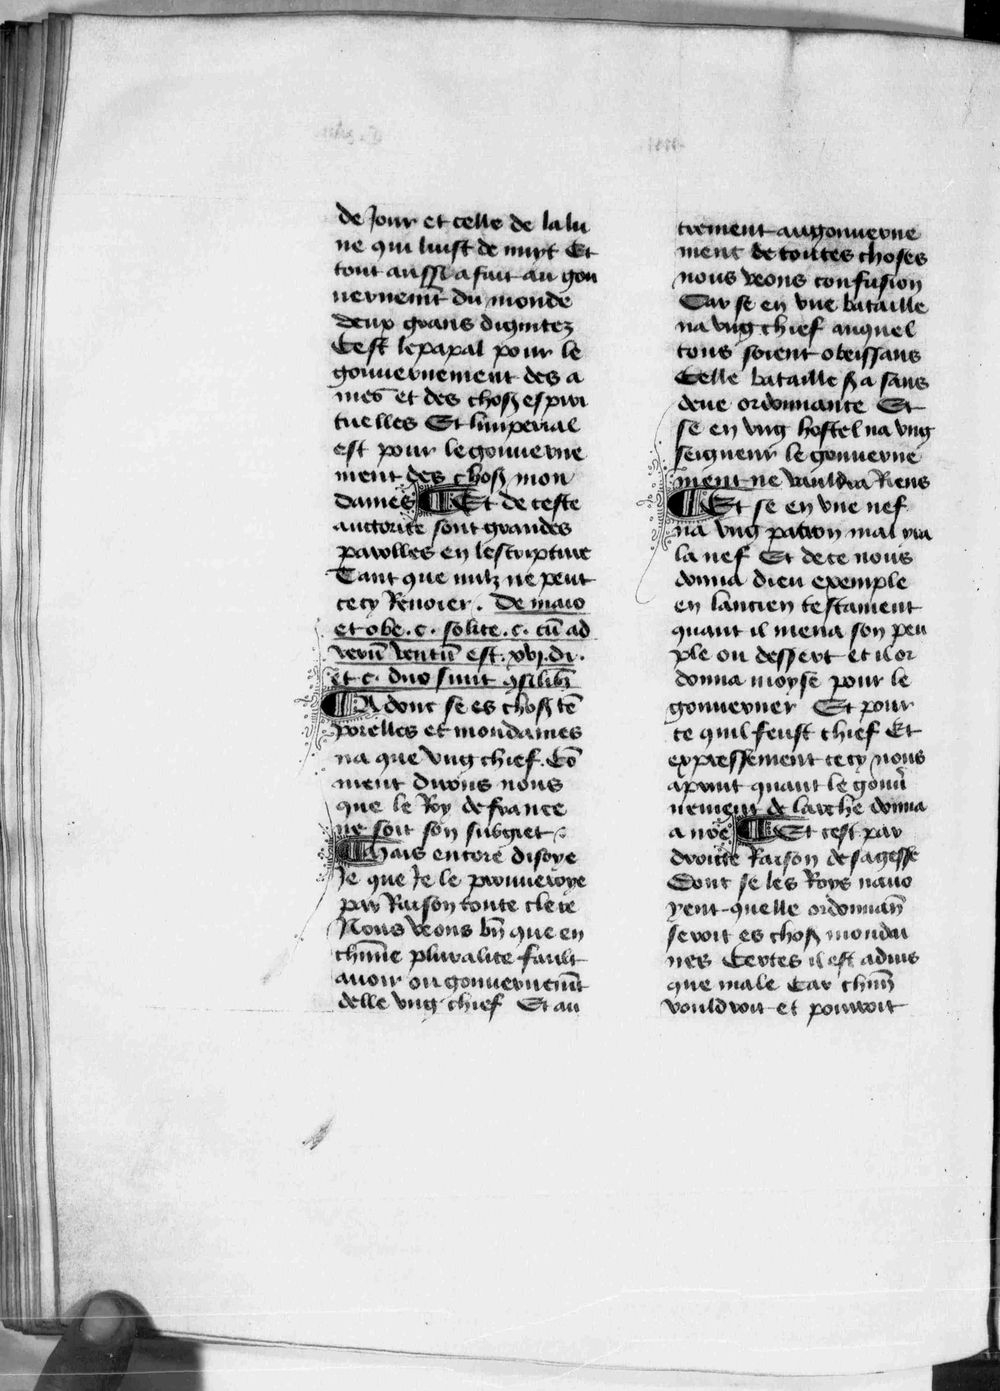 de Jour et celle de la lu
ne qui luist de nuyt Et
tout aussi a fait au gou
uernemt du monde
deux grans dignitez
Cest le papal pour le
gouuernement des a
mes et des choses espiri
tuelles Et limperial
est pour le gouuerne
ment des choses mon
daines ¶ Et de ceste
auctorite sont grandes
parolles en lescripture
Tant que nulz ne peut
cecy Renoier . De maio
et obe . c . solite . c . cu ad
veru ventu est . xvj . di .
et c . duo sunt
¶ A donc se es choses te
porelles et mondaines
na que vng chief . Co
ment dirons nous
que le Roy de france
ne soit son subgiet .
¶ Mais encore disoye
Je que Je le prouueroye
par Raison toute clere
Nous veons bn que en
chune pluralite fault
auoir ou gouuernemt
delle vng chief Et au
trement au gouuerne
ment de toutes choses
nous veons confusion
Car se en vne bataille
na vng chief auquel
tous soient obeissans
Celle bataille sera sans
deue ordonnance Et
se en vng hostel na vng
seigneur le gouuerne
ment ne vauldra Riens
¶ Et se en vne nef
na vng patron mal yra
la nef Et de ce nous
donna dieu exemple
en lancien testament
quant il mena son peu
ple ou dessert et il or
donna moyse pour le
gouuerner Et pour
ce quil feust chief Et
expressement cecy nous
aprint quant le gouu
nement de larche donna
a noe ¶ Et cest par
droite Raison de sagesse
Dont se les Roys nauo
yent quelle ordonnan
seroit es choses mondai
nes Certes il est aduis
que male Car chun
vouldroit et pourroit